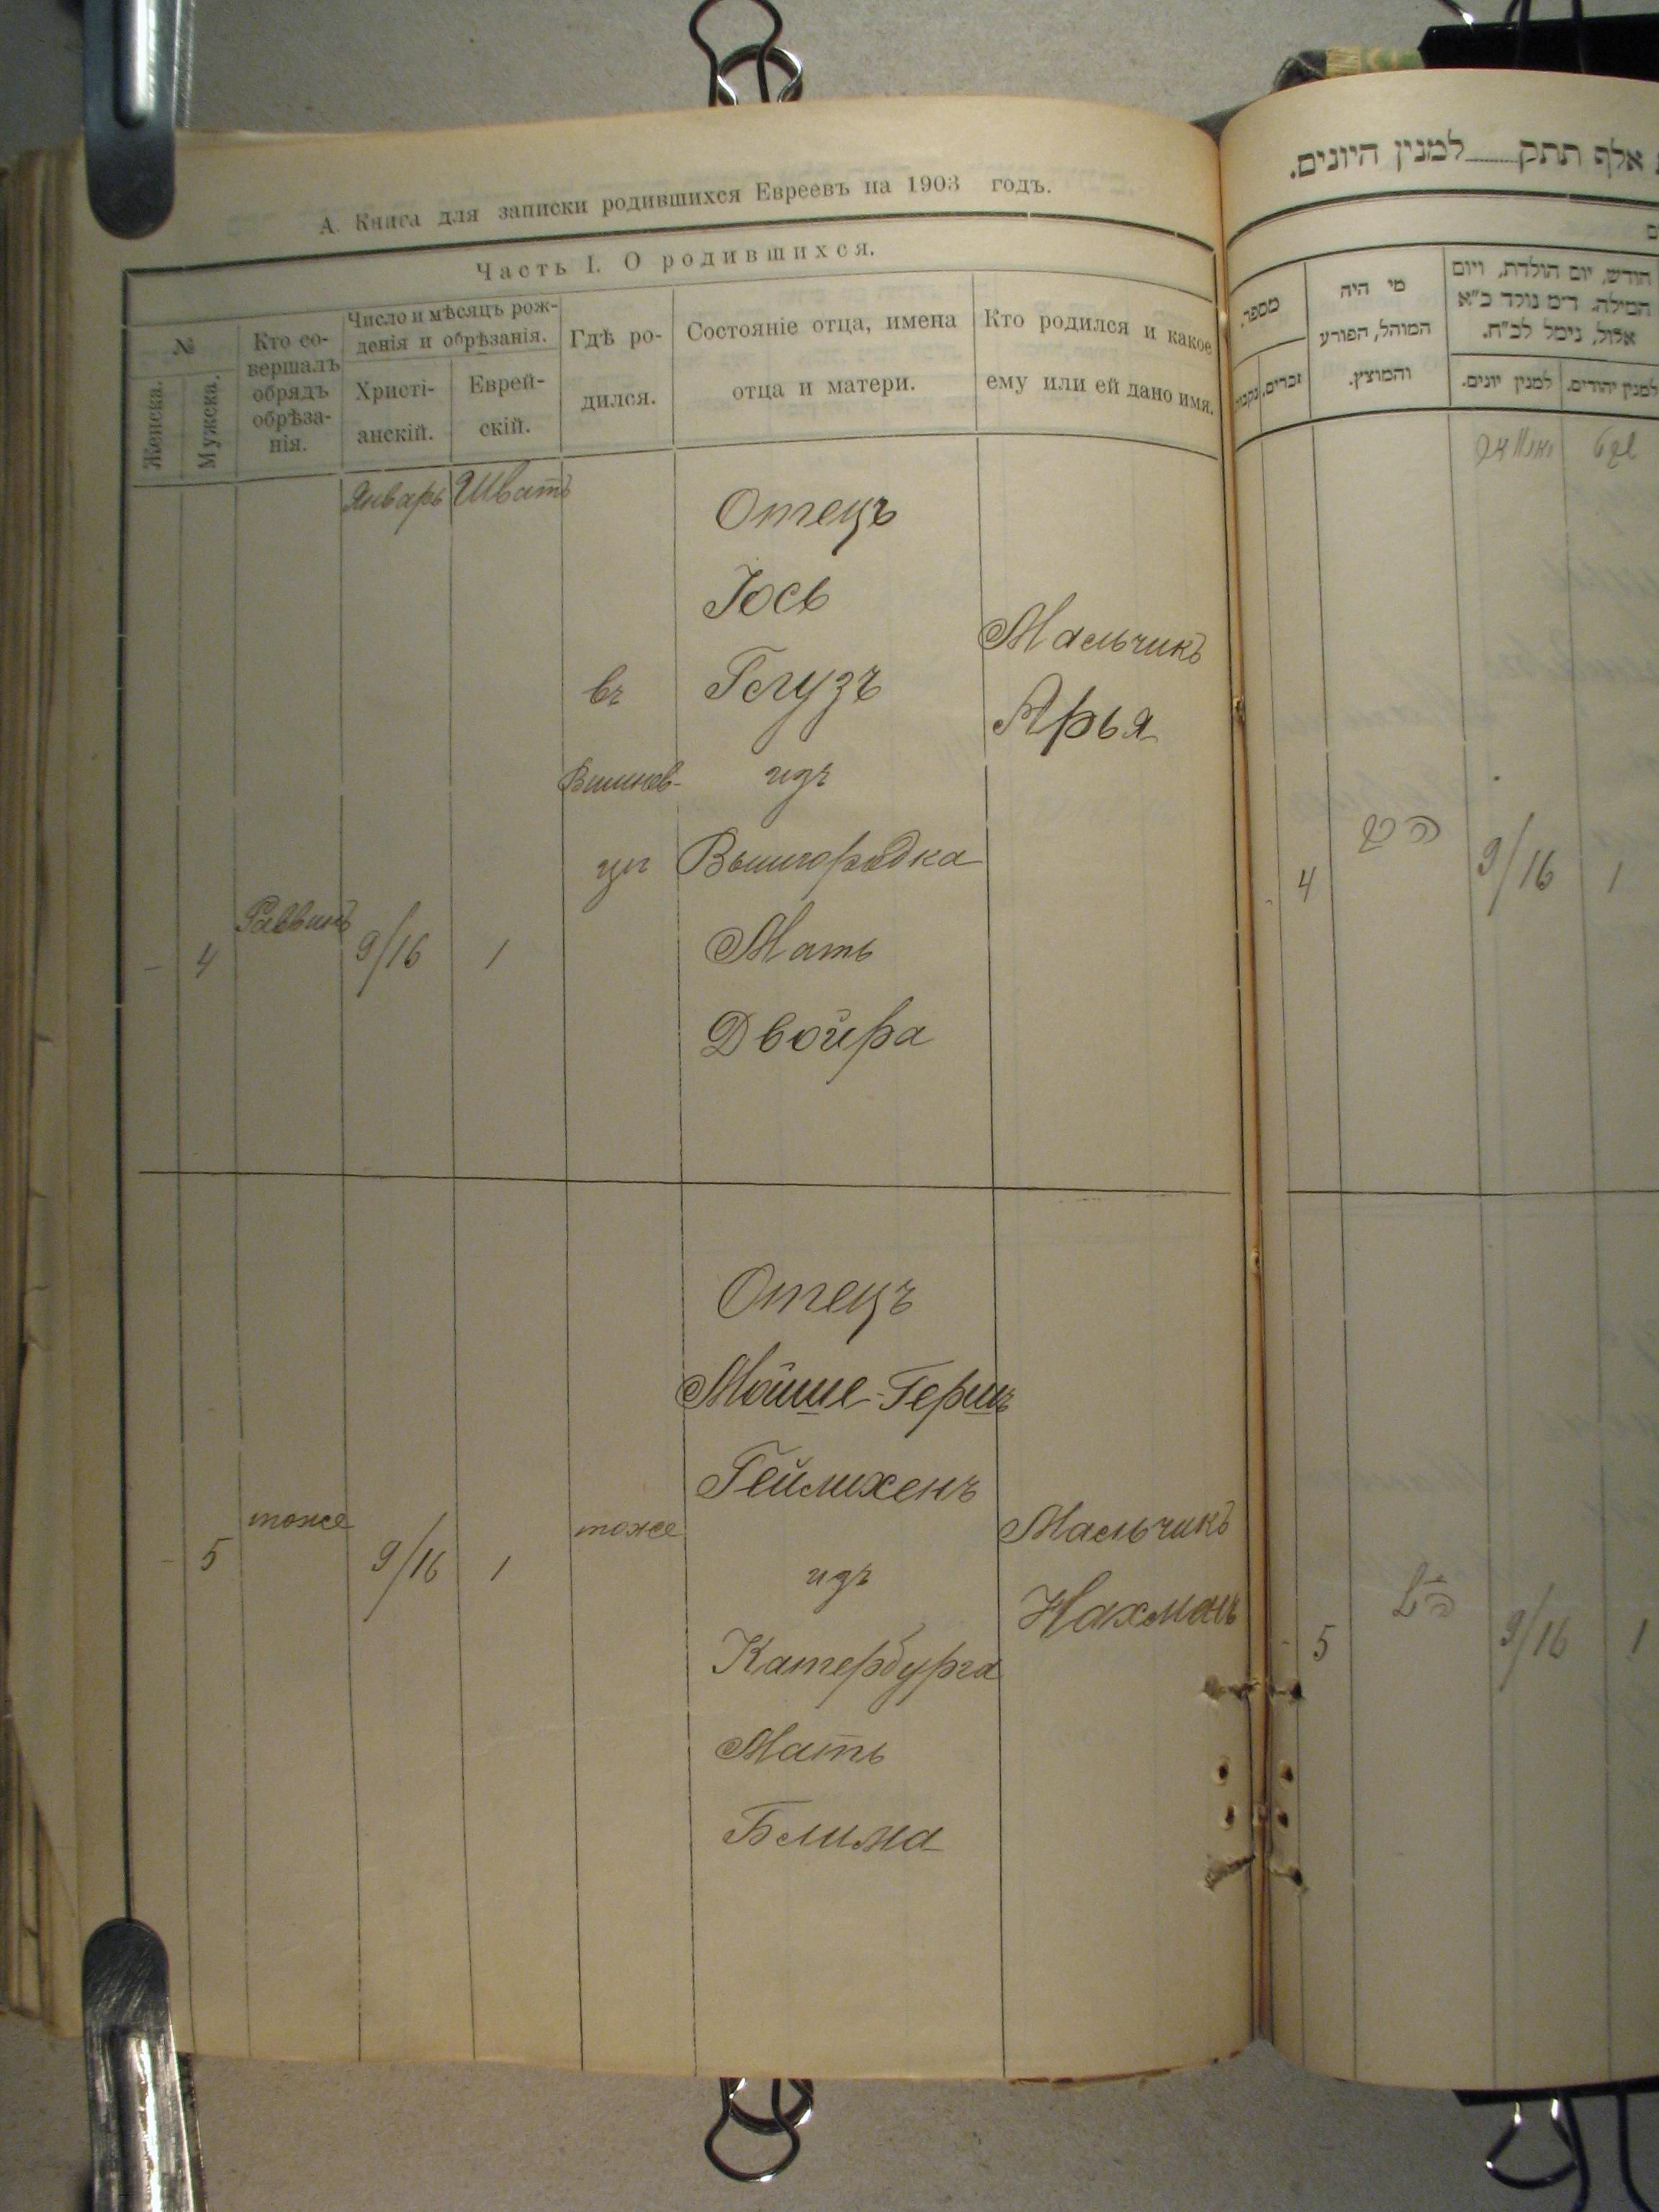 А. Книга для записки родившихся Евреевъ на 1903 годъ.
Часть I. О родившихся.
№
Женска.
Мужска.
Кто со-
вершалъ
обрядъ
обрѣза-
нія.
Число и мѣсяцъ рож-
денія и обрѣзанія.
Христі-
анскій.
Еврей-
скій.
Гдѣ ро-
дился.
Состояніе отца, имена
отца и матери.
Кто родился и какое
ему или ей дано имя.
Январь
Шватъ
– 4
Раввинъ
9/16
1
въ
Вишнев-
цѣ
Отецъ
Іось
Глузъ
изъ
Вышгородка
Мать
Двойра
Мальчикъ
Арья
– 5
тоже
9/16
1
тоже
Отецъ
Мойше-Гершъ
Гейлихенъ
изъ
Катербурга
Мать
Блима
Мальчикъ
Нахманъ
אלף תתק למנין היונים.
מספר.
נקבות
זכרים.
מי היה
המוהל, הפורע
והמוצץ.
חודש, יום הולדת, ויום
המילה. ד״מ נולד כ״א
אלול, נימל לכ״ח.
למנין יונים.
למנין יהודים.
4
9/16
1
- 5
9/16
1